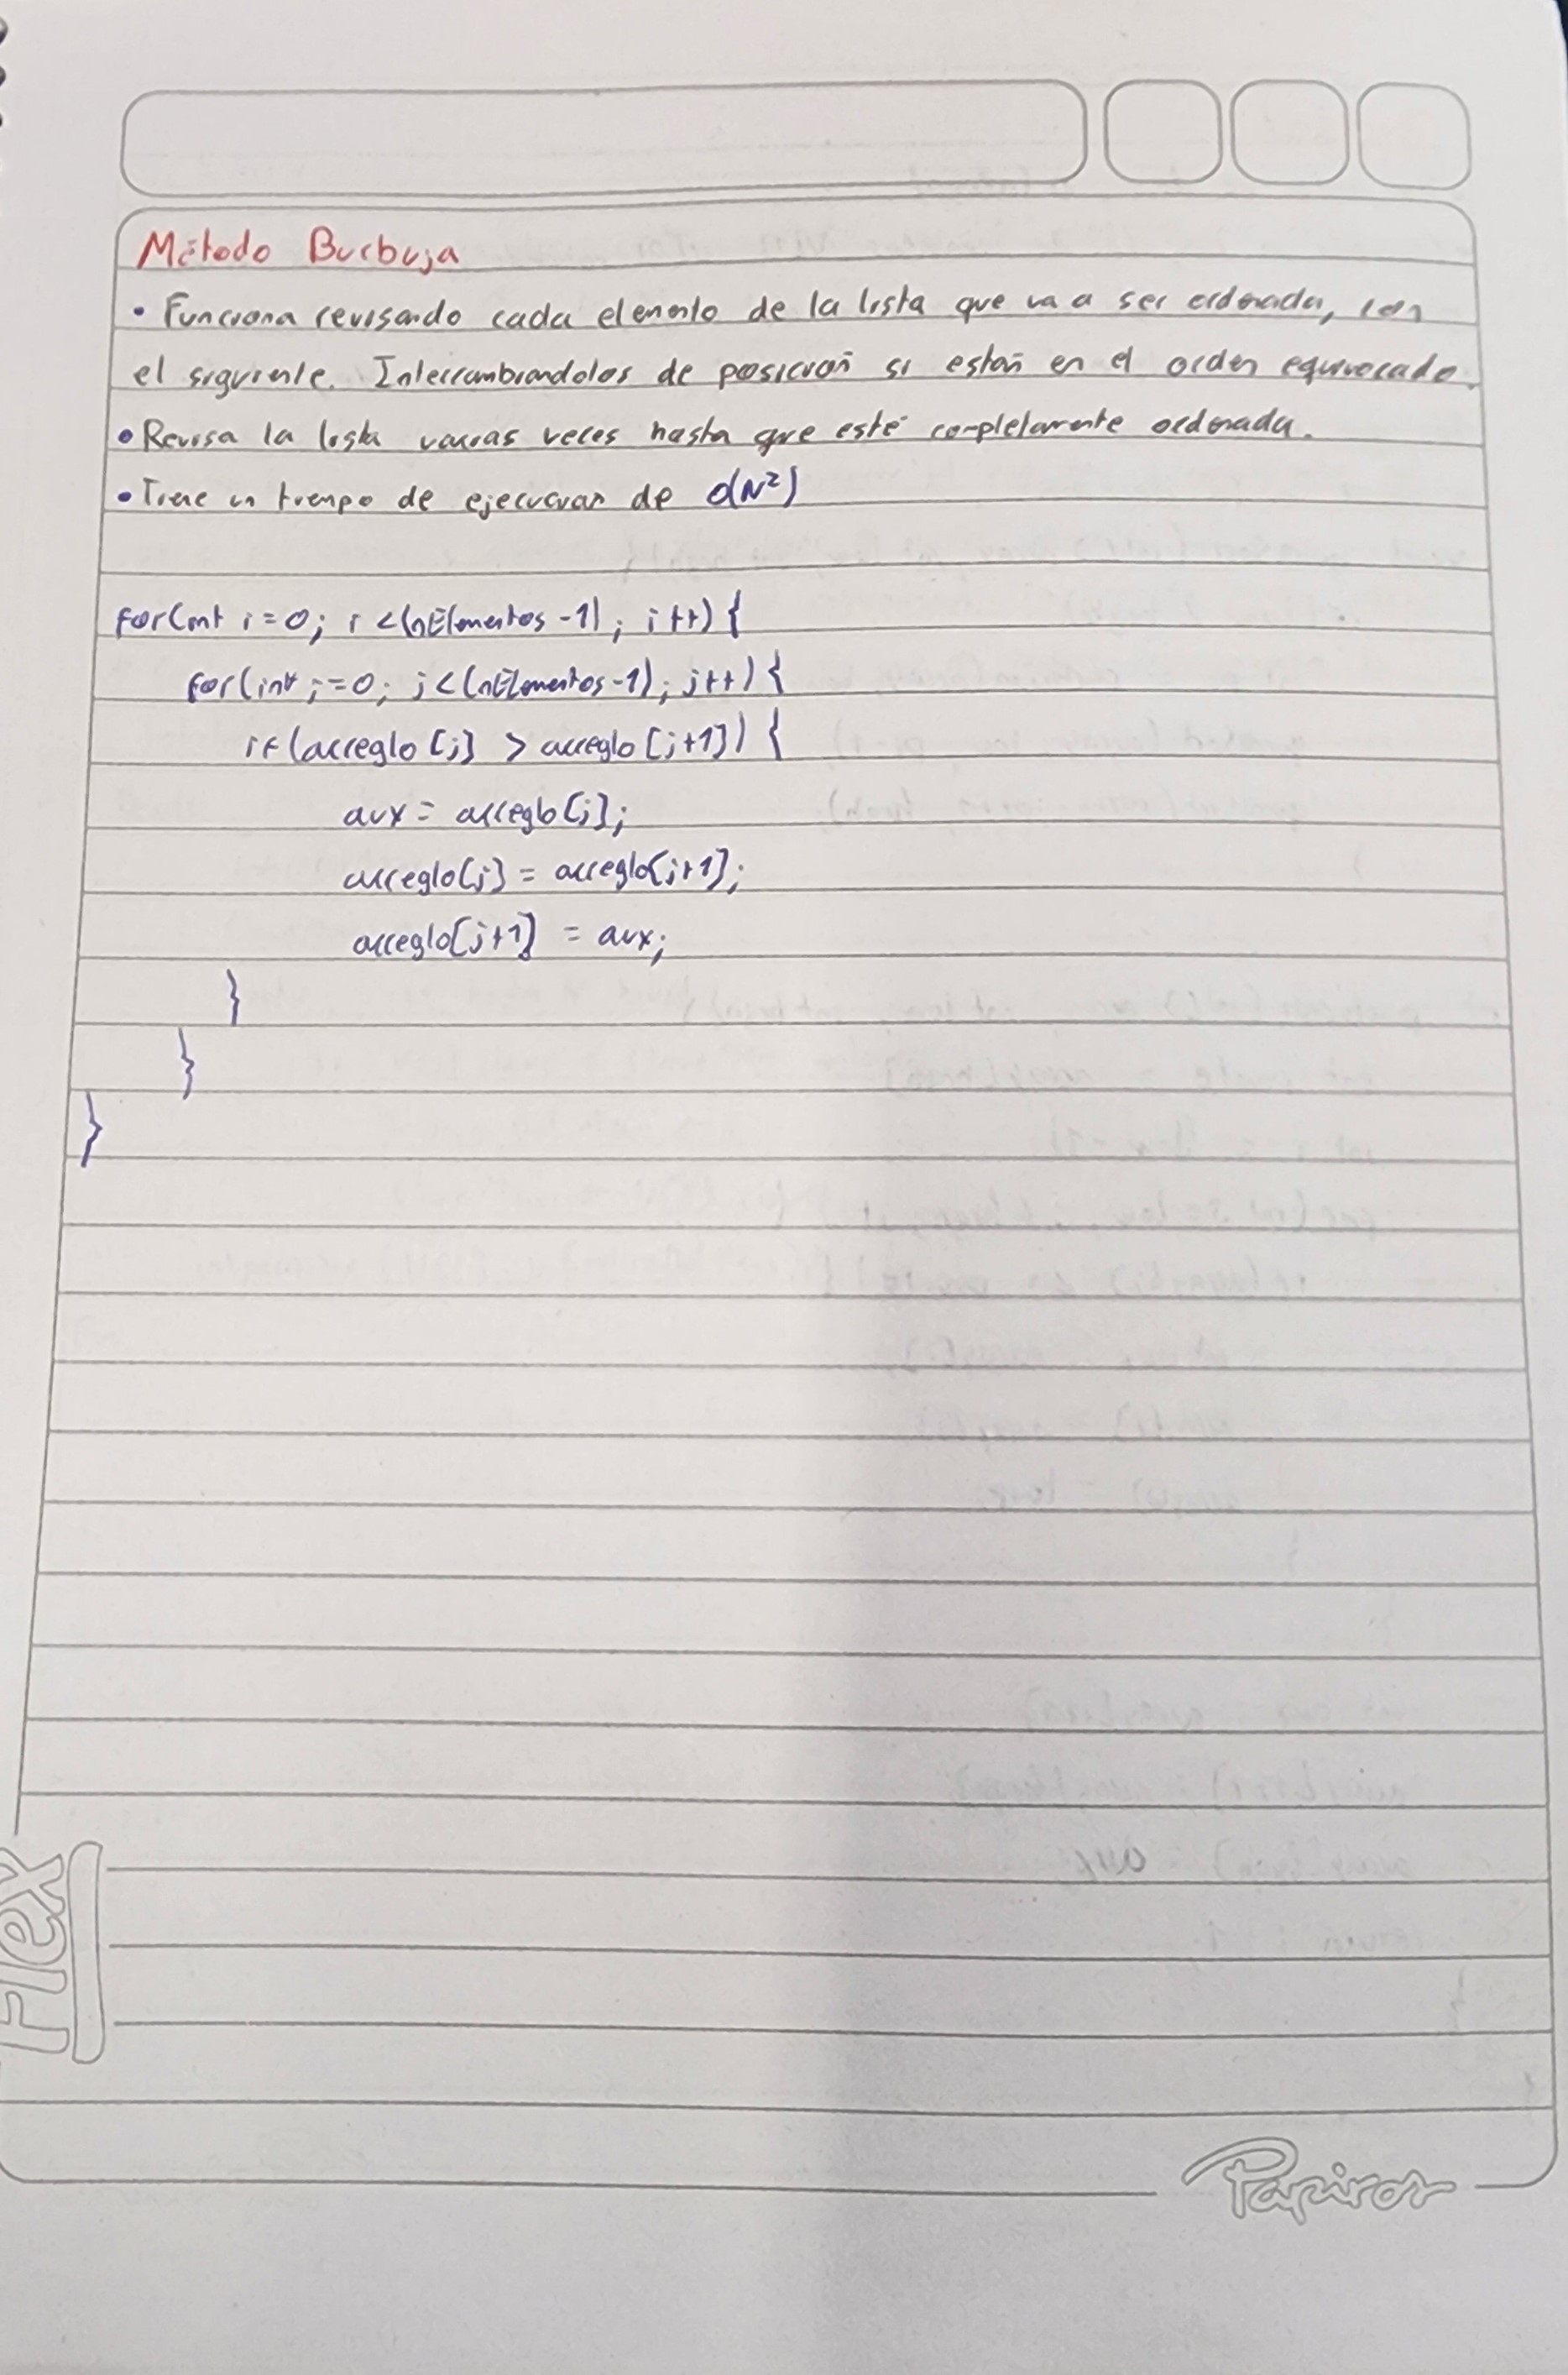 Método Burbuja
• Funciona revisando cada elemento de la lista que va a ser ordenada, con
el siguiente. Intercambiandolos de posición si están en el orden equivocado.
• Revisa la lista varias veces hasta que esté completamente ordenada.
• Tiene un tiempo de ejecución de O(N²)
for(int i=0; i<(nElementos-1); i++){
for(int j=0; j<(nElementos-1); j++){
if(arreglo[j] > arreglo[j+1]){
aux = arreglo[j];
arreglo[j] = arreglo[j+1];
arreglo[j+1] = aux;
}
}
}
Flex
Papiros